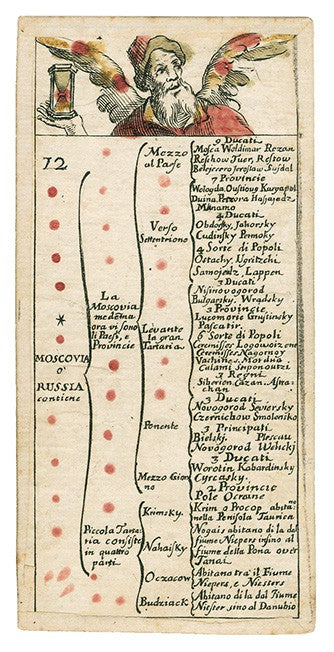 12
MOSCOVIA
o'
RUSSIA
contiene
La
Moscovia
medesima
ora vi sono
li Paesi, e
Provincie
Piccola Tana
ria consiste
in quattro
parti
Mezzo
al Paese
Verso
Settentrione
Levante
la gran
Tartaria
Ponente
Mezzo Gior
no
Krimsky.
Nahaisky
Oczacow
Budziack
9 Ducati
Mosca Woldimar Rezan
Reschow Tuer, Restow
Jeroslaw Susdal
7 Provincie
Wologda Oustioug
Duina
4 Ducati
Obdorsky, Jahorsky
Cudinsky Permsky
4 Sorte di Popoli
Ostachy, Ugritzchi
Samojedz, Lappen
3 Ducati
Nisinovogorod
Bulgarsky. Wradsky
3 Provincie
Lucomorie Grustinsky
Pascatir.
6 Sorte di Popoli
Ceremisses
Ceremisses Nagornoy
Mordua
Calami
3 Regni
Siberien, Cazan,
chan
3 Ducati
Novogorod Seversky
Czernichow Smolensko
3 Principati
Bielski, Plescau
Novogorod Welickj
3 Ducati
Worotin Kabardinsky
Cyrcasky.
2 Provincie
Pole Ocrane
Krim o Procop abita no
nella Penisola Taurica
Nogais abitano di la dal
fiume Niepers insino al
fiume della Pona over
Tanai
Abitano tra il Fiume
Niepers, e Niesters
Abitano di la dal Fiume
Niester sino al Danubio